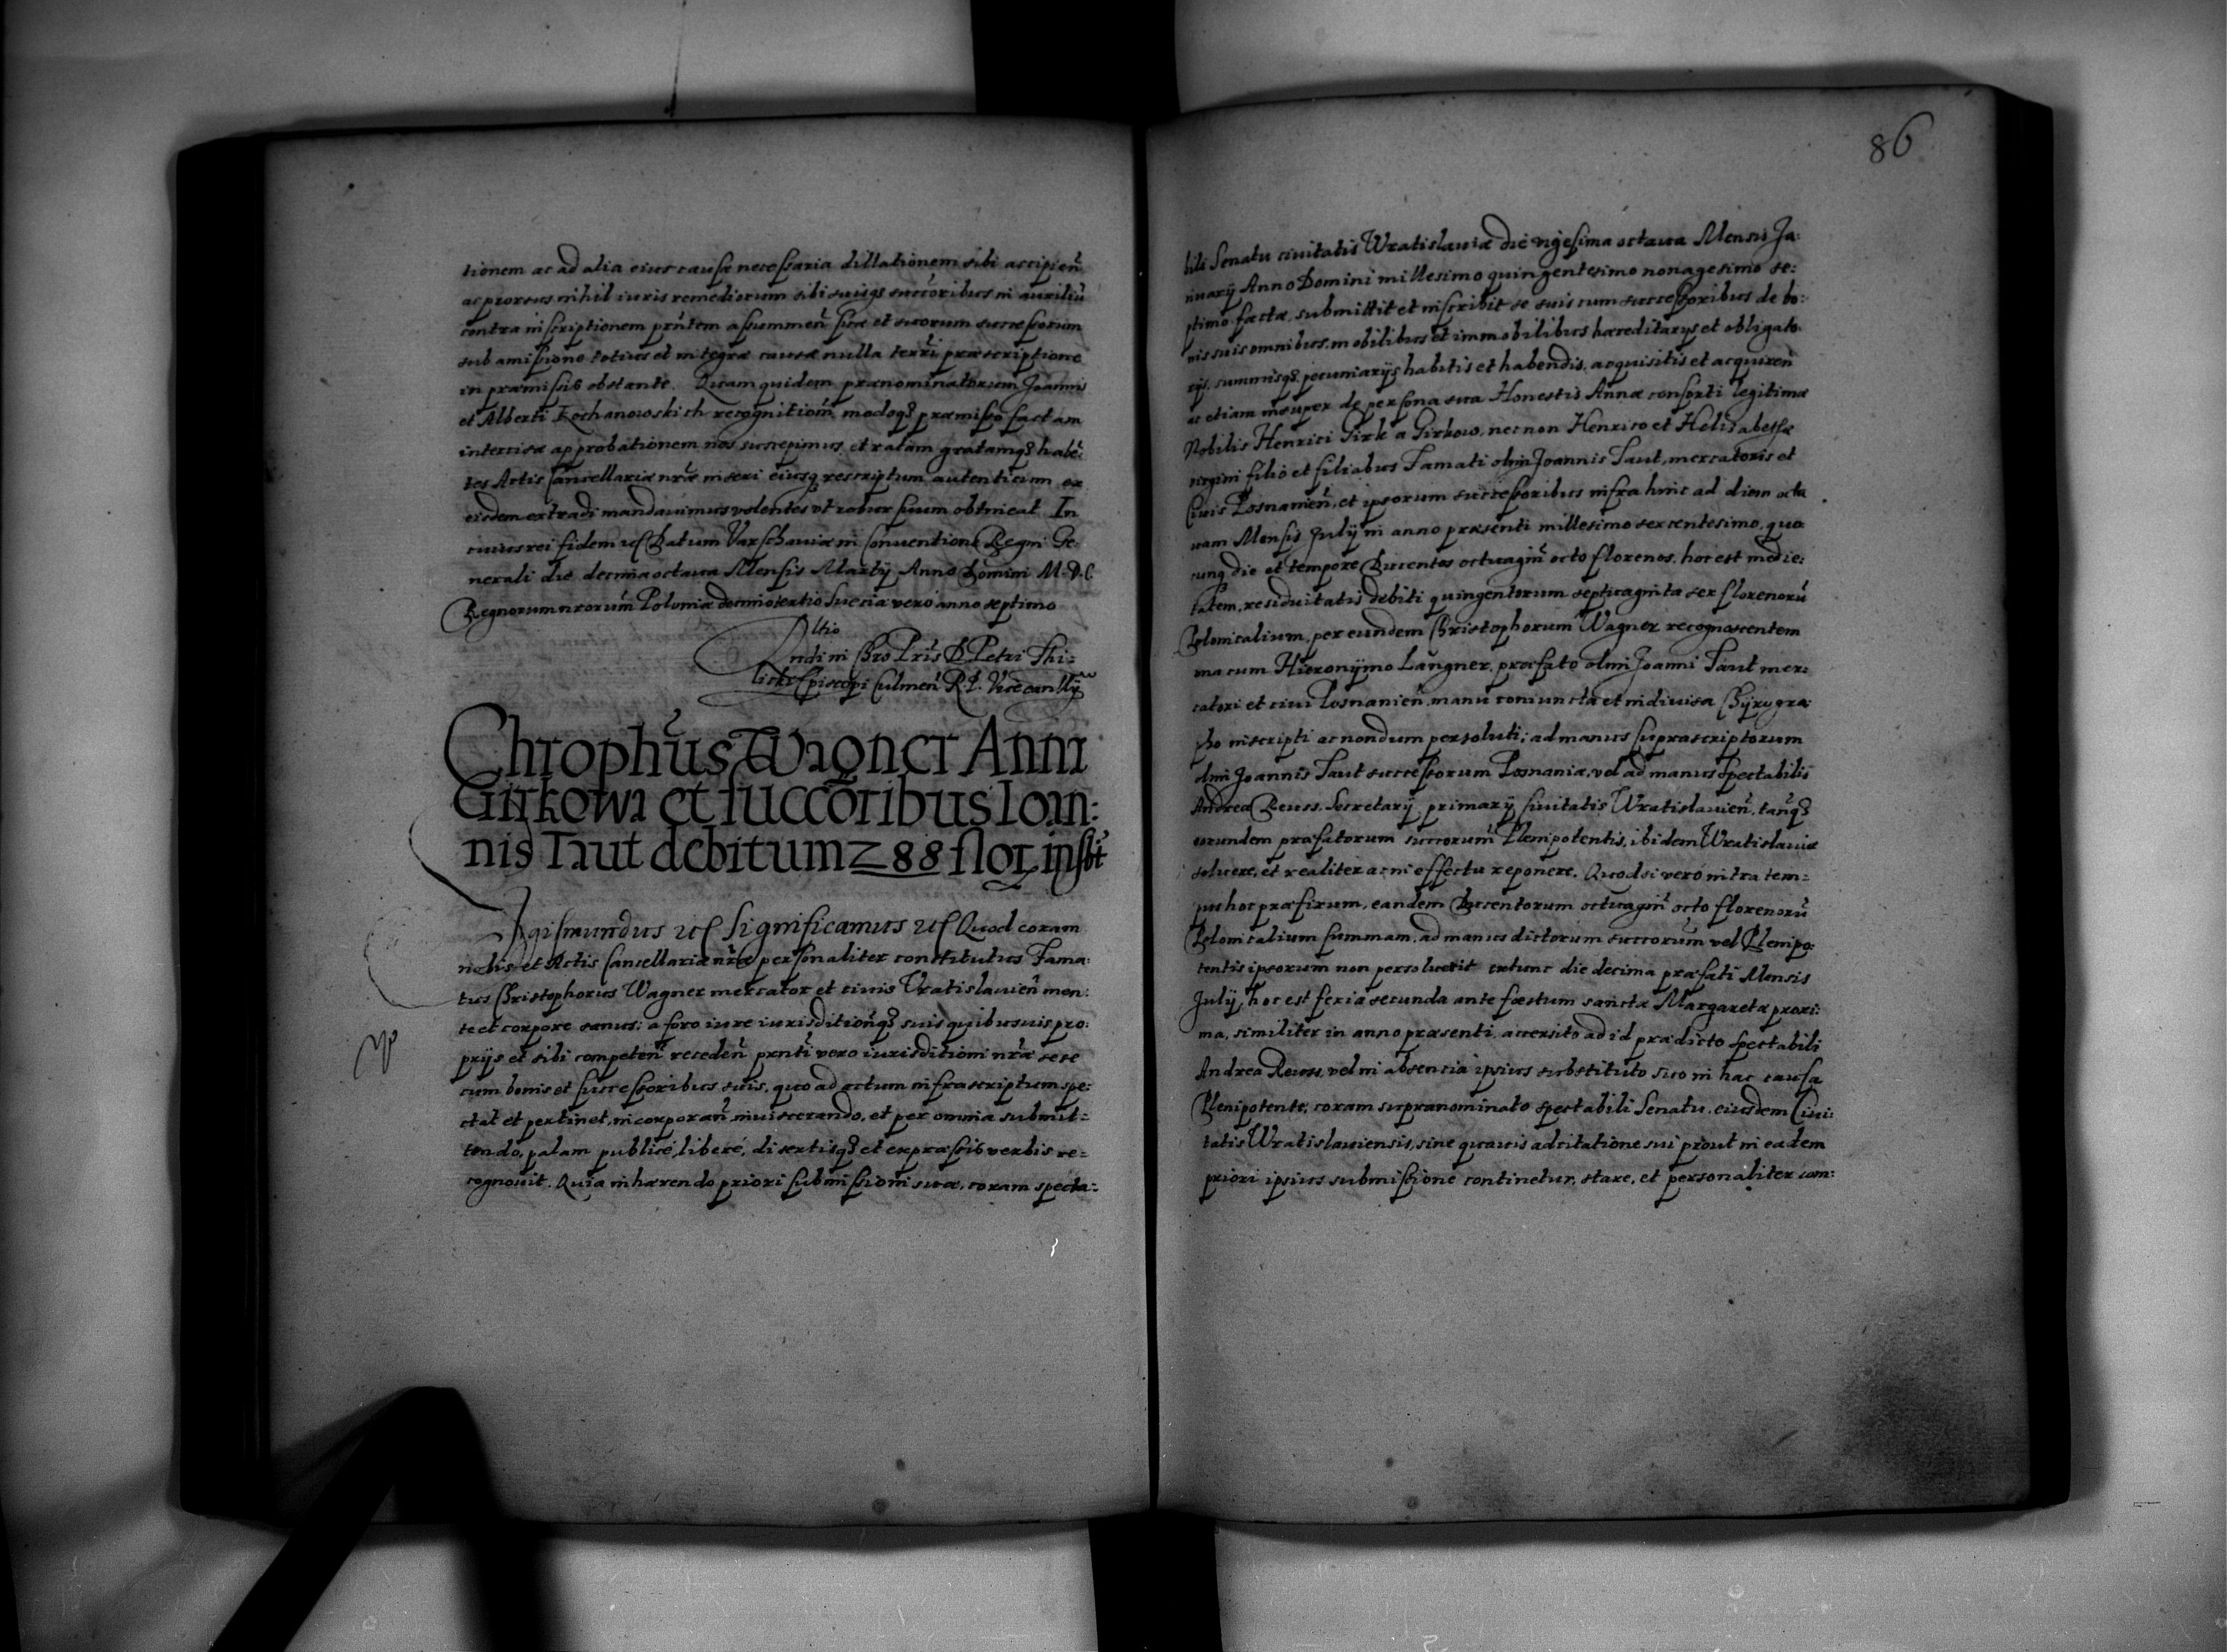 tionem ac ad alia eius causæ necessaria dillationem sibi accipień
ac prorsus nihil iuris remediorum sibi suisq3 succōribus in auxiliū
contra inscriptionem prn̄tem assummeń suæ et suorum successorum
sub amissione totius et integræ causæ nulla terr̄i præscriptione
in præmissis obstante. Quam quidem prænominatorum Joannis
et Alberti Kochanowskich recognitiom̄ modoq3 præmisso factam
intercisæ approbationem nos suscepimus et ratam gratamq3 habē
tes Actis Cancellariæ nr̄æ inseri eiusq rescriptum autenticum ex
eisdem extradi mandauimus volentes vt robur suum obtineat. In
cuius rei fidem etc Datum Varschauiæ in Conuentione Regni Ge:
nerali die decima octaua Mensis Martij Anno Domini M.D.C.
Regnorum nrorum̄ Poloniæ decimotertio Sueciæ vero anno septimo
Rltio
ndi in Chro Pris̄ D. Petri Thi:
licki Episcopi Culmeń R.P. Vicecancllij
Chrophūs Wagner Annæ
Girkowa et succōribus Ioan:
nis Taut debitum 288 flor inscbt
Sigismundus etc Significamus etc Quod coram
nobis et Actis Cancellariæ nr̄æ personaliter constitutus Fama:
tus Christophorus Wagner mercator et ciuis Vratislauień men:
te et corpore sanus: a foro iure iurisditionq̄3 suis quibusuis pro:
prijs et sibi competeń recedeń prntī vero iurisditioni nr̄æ se se
cum bonis et successoribus suis, quo ad actum infrascriptum spe:
ctat et pertinet, incorporań inuiscerando, et per omnia submit=
tendo, palam publicé, liberé, disertisq3 et expræssis verbis re=
cognouit. Quia inhærendo priori submissioni suæ, coram specta:
86
bili Senatu ciuitatis Wratislauiæ die vigesima octaua Mensis Ja:
nuarij Anno Domini millesimo quingentesimo nonagesimo se:
ptimo factæ, submittit et inscribit se suis cum successoribus de bo:
nis suis omnibus, mobilibus et immobilibus hæreditarijs et obligato:
rijs, summisq3 pecuniarijs habitis et habendis, acquisitis et acquireń
ac etiam insuper de persona sua Honestis Annæ consorti legitimæ
Nobilis Henrici Girk a Girkow, necnon Henrico et Helisabethæ
virgini filio et filiabus Famati olim Joannis Taut, mercatoris et
Ciuis Posnanień, et ipsorum successoribus infra hinc ad diem octa
uam Mensis Julij in anno præsenti millesimo sexcentesimo, quo
cunq die et tempore Ducentos octuagin̄ octo florenos, hoc est medie:
tatem, residuitatis debiti quingentorum septuaginta sex florenorū
Polonicalium, per eundem Christophorum Wagner recognoscentem
vna cum Hieronijmo Langner, præfato olim Joanni Taut mer:
catori et ciui Posnanień manu coniuncta et indiuisa Chijrogra:
pho inscripti ac nondum persoluti; ad manus supræscriptorum
olim Joannis Taut successorum Posnaniæ, vel ad manus Spectabilis
Andreæ Reuss, Secretarij primarij Ciuitatis Wratislauień, tanq̄3
eorundem præfatorum succorum̄ Plenipotentis, ibidem Wratislauiæ
soluere, et realiter ac in effectu reponere. Quod si veró intra tem=
pus hoc præfixum, eandem Ducentorum octuagin̄ octo florenorū
Polonicalium summam, ad manus dictorum succorum̄ vel Plenipo:
tentis ipsorum non persoluerit extunc die decima præfati Mensis
Julij, hoc est feria secunda ante fæstum sanctæ Margaretæ proxi:
ma, similiter in anno præsenti, accersito ad id prædicto spectabili
Andrea Reuss, vel in absencia ipsius substituto suo in hac causa
Plenipotente; coram supranominato spectabili Senatu, eiusdem Ciui:
tatis Wratislauiensis, sine quauis adcitatione sui prout in eadem
priori ipsius submissione continetur, stare, et personaliter com: